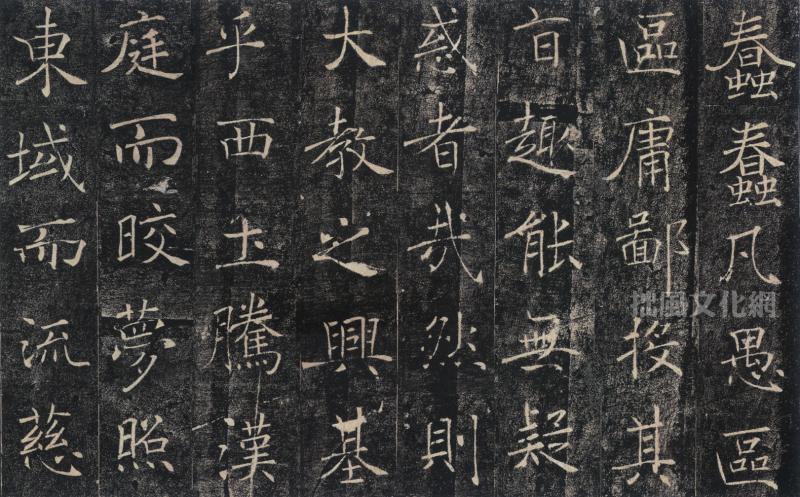 蠢蠢凡愚區
區庸鄙投其
旨趣能無疑
惑者哉然則
大教之興基
乎西土騰漢
庭而皎夢照
東域而流慈
拙風文化網